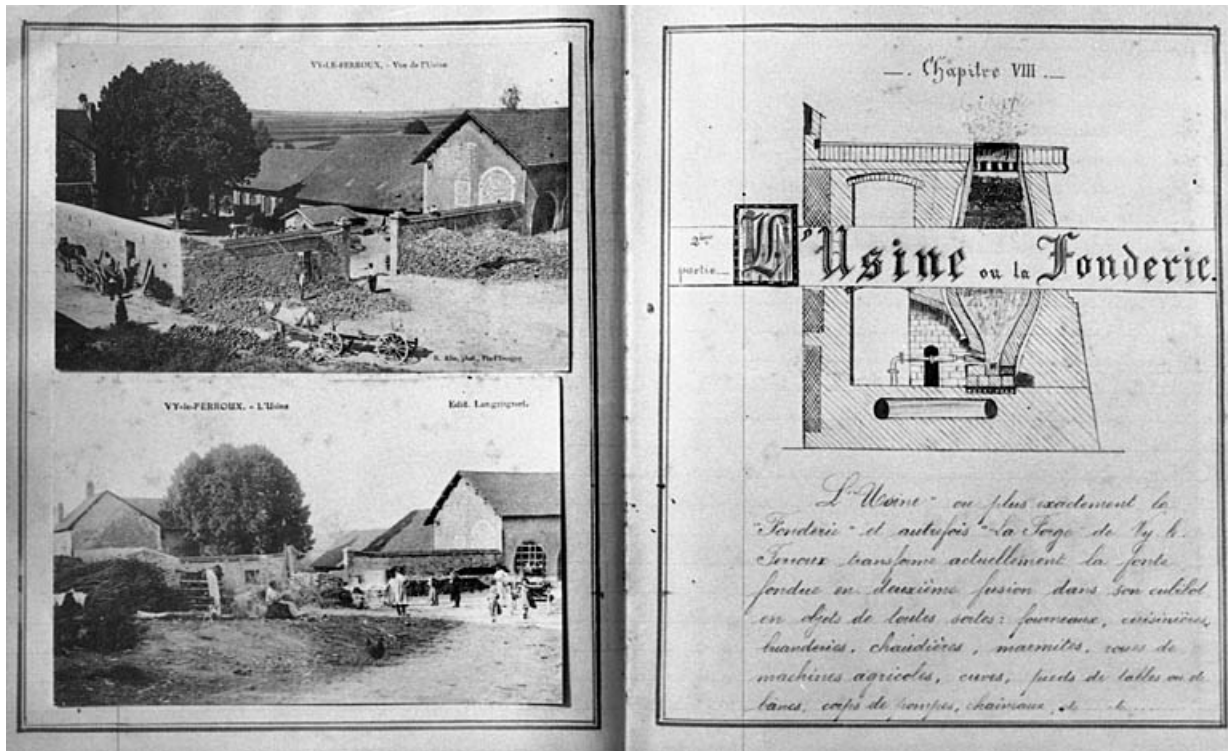 VY-LE-FERROUX. - Vue de l'Usine
VY-le-FERROUX. - L'Usine
Edit. Langrognet.
— Chapitre VIII —
2ème partie
L'Usine ou la Fonderie.
L'"Usine" ou plus exactement la
"Fonderie" et autrefois "La Forge de Vy le
Ferroux transforme actuellement la fonte
fondue en deuxième fusion dans son cubilot
en objets de toutes sortes : fourneaux, cuisinières,
buanderies, chaudières, marmites, roues de
machines agricoles, cuves, pieds de tables ou de
bancs, corps de pompes, chaineaux,